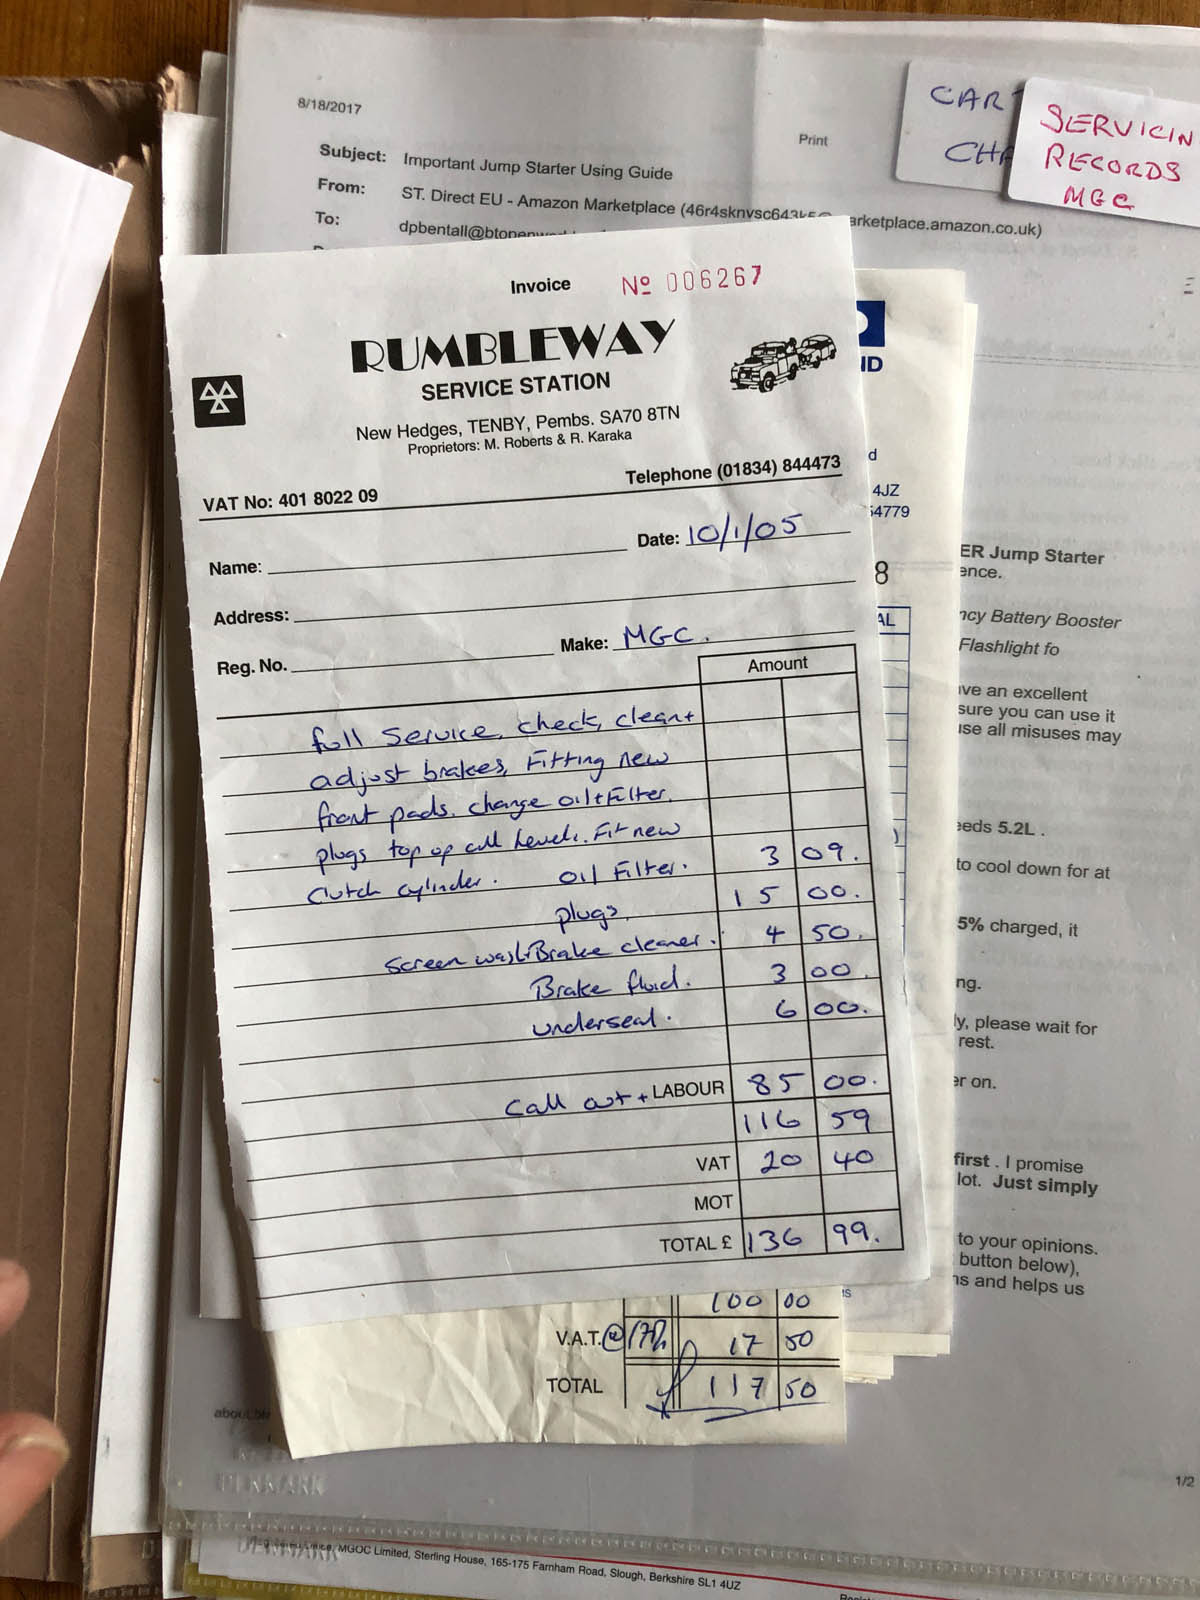 8/18/2017
Print
CAR
SERVICIN
RECORDS
MGC
Subject: Important Jump Starter Using Guide
From: ST. Direct EU - Amazon Marketplace
arketplace.amazon.co.uk)
To:
Invoice Nº 006267
RUMBLEWAY
SERVICE STATION
New Hedges, TENBY, Pembs. SA70 8TN
Proprietors: M. Roberts & R. Karaka
Telephone (01834) 844473
VAT No: 401 8022 09
Date: 10/1/05
Name:
Address:
Make: MGC.
Reg. No.
Amount
full Service, check, clean +
adjust brakes, Fitting new
front pads. change oil + Filter.
plugs top up all levels. Fit new
Clutch cylinder. oil Filter. 3 09.
plugs. 15 00.
Screen wash + Brake cleaner. 4 50.
Brake fluid. 3 00.
underseal. 6 00.
Call out + LABOUR 85 00.
116 59
VAT 20 40
MOT
TOTAL £ 136 99.
100 00
V.A.T. @ 17½ 17 50
TOTAL 117 50
ND
d
4JZ
54779
8
AL
ER Jump Starter
ence.
ncy Battery Booster
Flashlight fo
ve an excellent
sure you can use it
use all misuses may
eeds 5.2L .
to cool down for at
5% charged, it
ng.
ly, please wait for
rest.
er on.
first . I promise
lot. Just simply
to your opinions.
button below),
ns and helps us
1/2
DENMARK
DENMARK
MGOC Limited, Sterling House, 165-175 Farnham Road, Slough, Berkshire SL1 4UZ